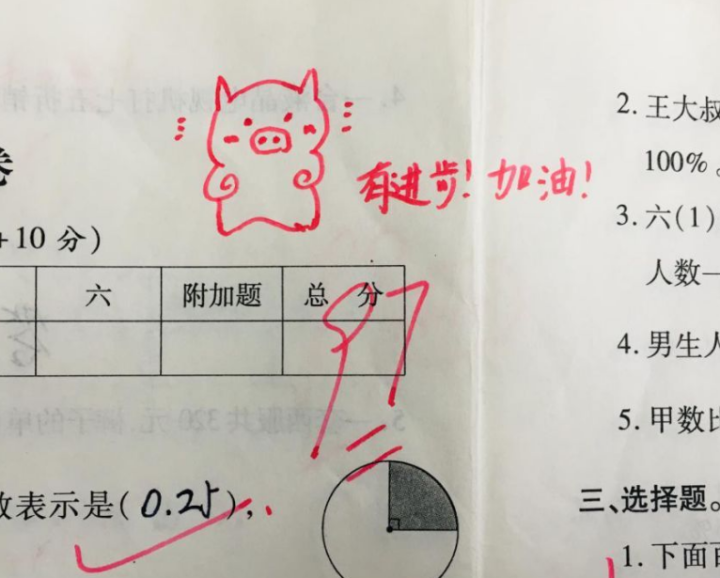 卷
有进步！加油！
+10 分）
六 附加题 总 分
97
数表示是(0.25),
2. 王大叔
100%。
3. 六(1)
人数一
4. 男生人
5. 甲数比
三、选择题。
1. 下面百